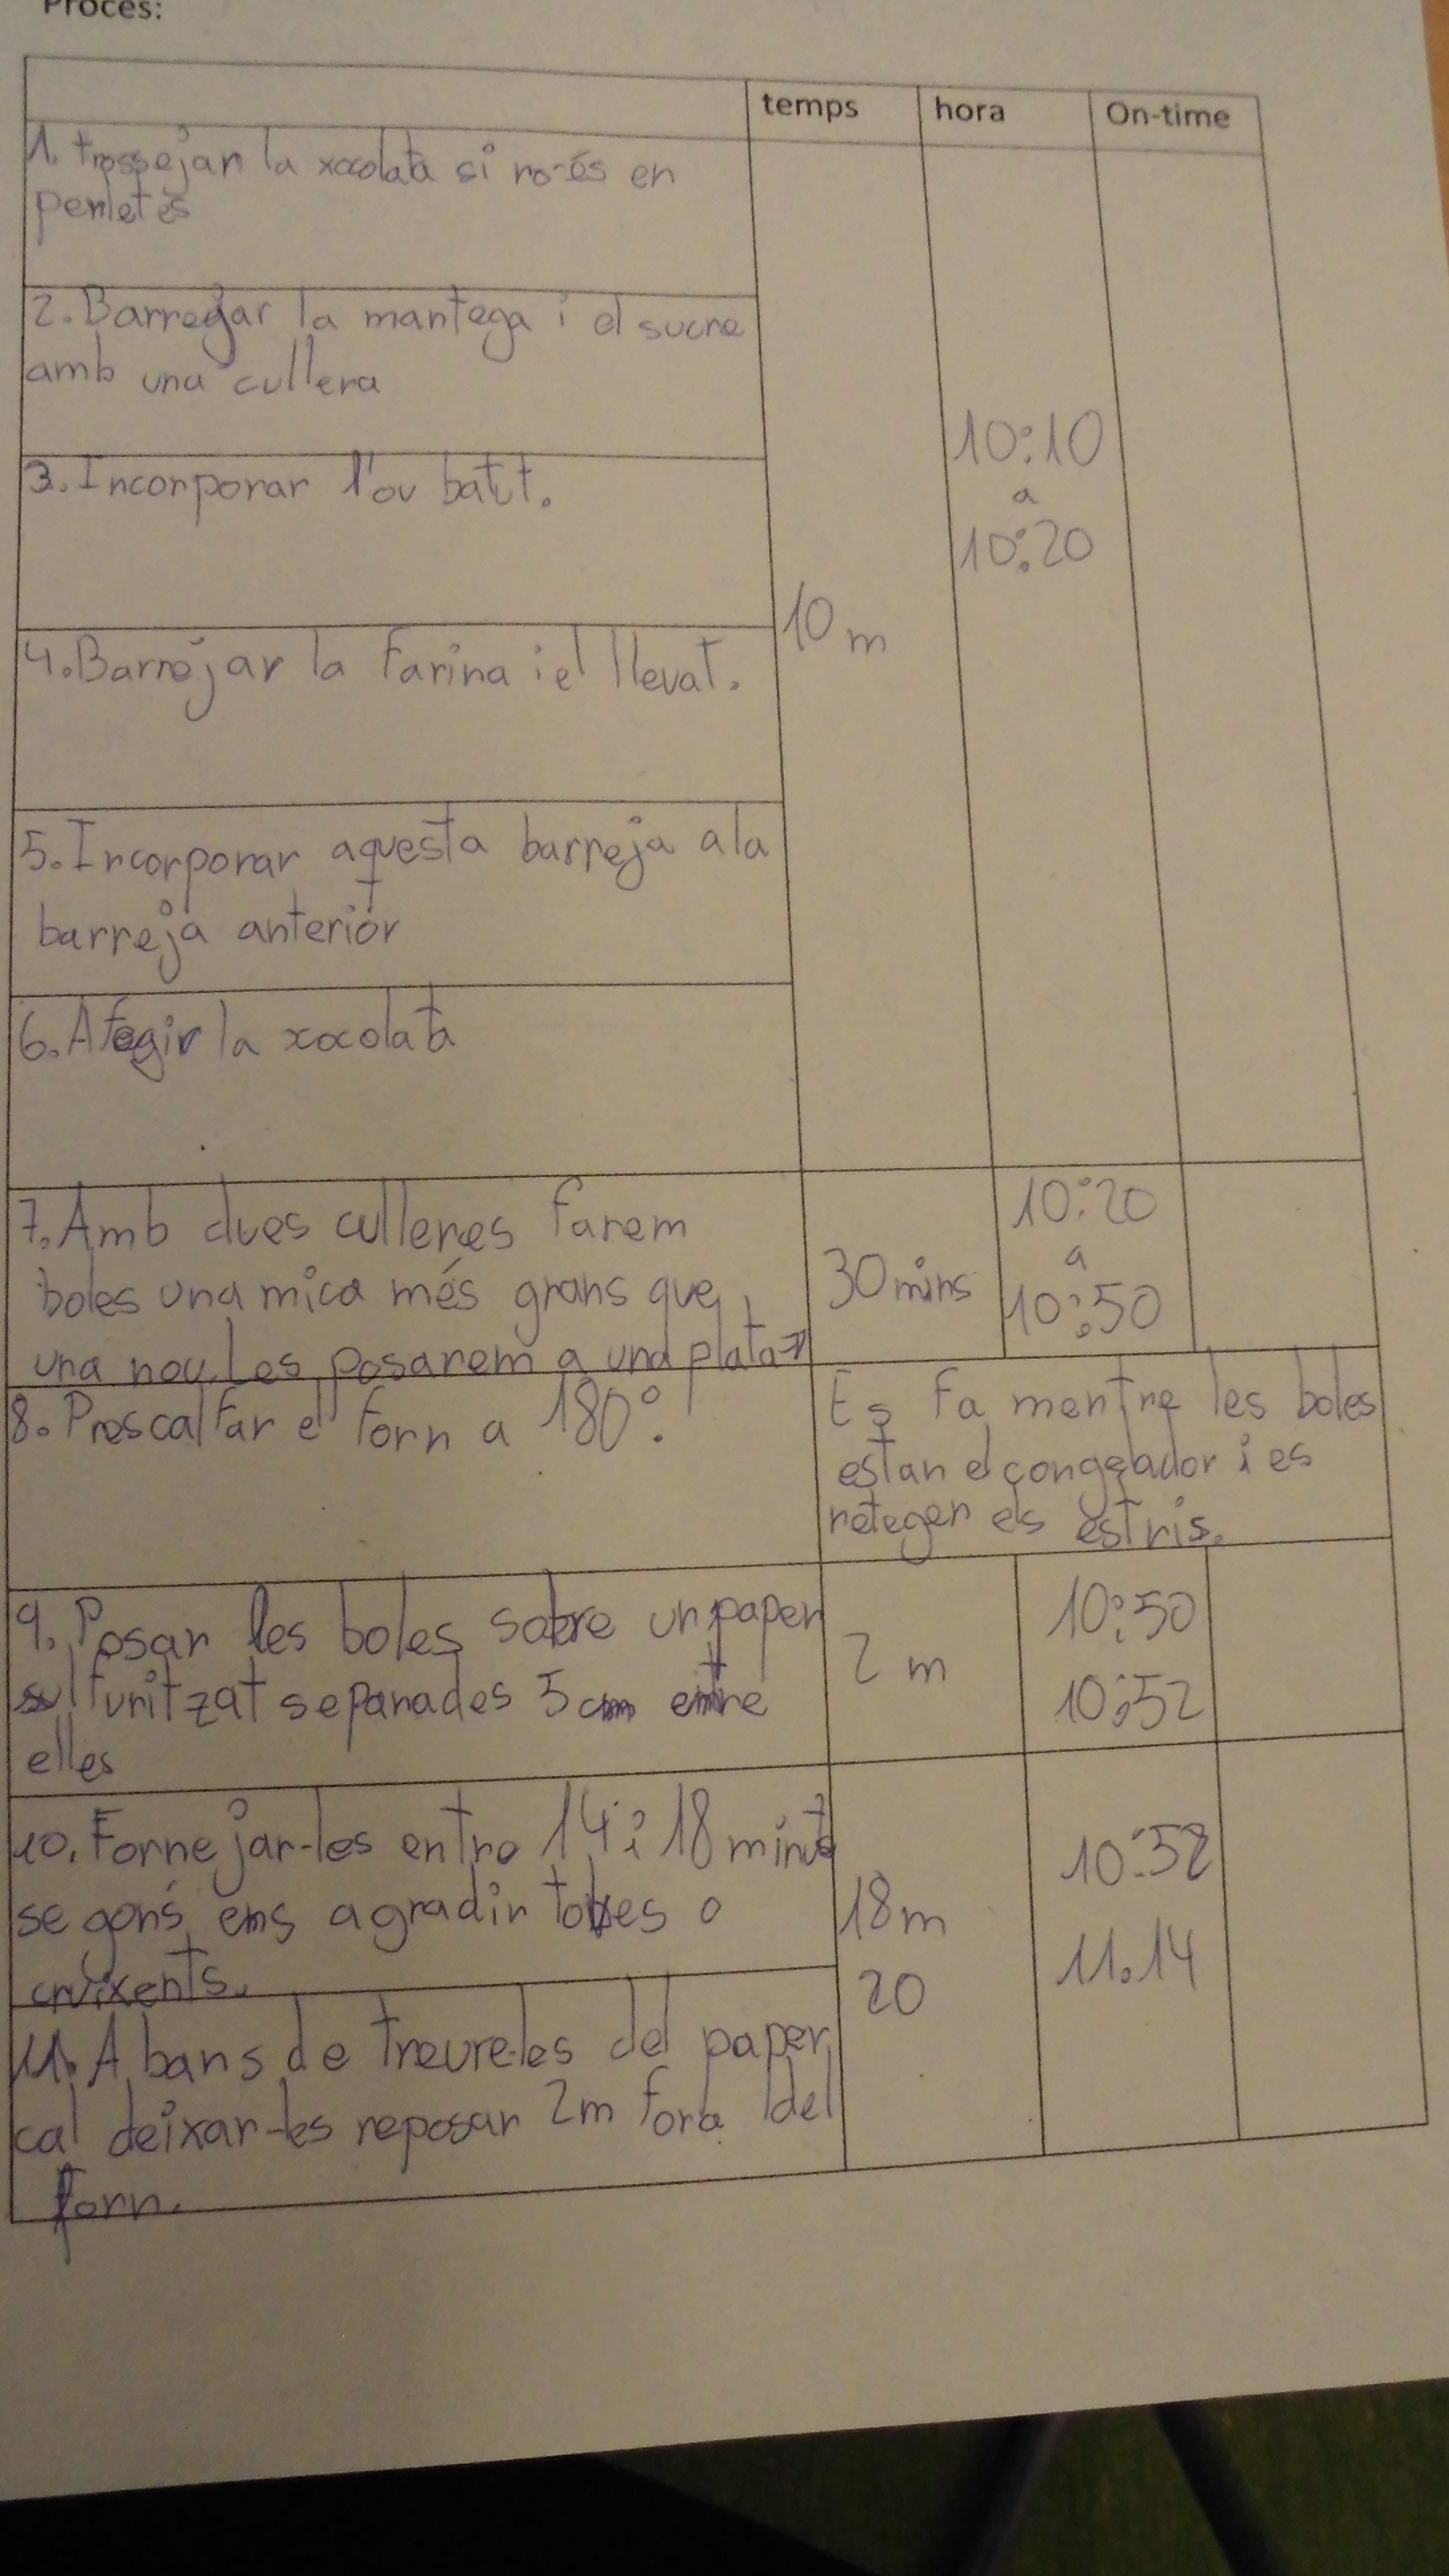 Procés:
temps hora On-time
1. trossejar la xocolata si no és en
perletes
2. Barrejar la mantega i el sucre
amb una cullera
3. Incorporar l'ou batut.
10:10
a
10:20
10 m
4. Barrejar la Farina i el llevat.
5. Incorporar aquesta barreja a la
barreja anterior
6. Afegir la xocolata
7. Amb dues culleres farem
boles una mica més grans que
una nou. Les posarem a una plata
30 mins
10:20
a
10:50
8. Prescalfar el forn a 180º.
Es fa mentre les boles
estan el congelador i es
reteger els estris.
9. Posar les boles sobre un paper
sulfuritzat separades 5 cm entre
elles
2 m
10:50
10:52
10. Fornejar-les entre 14 i 18 minuts
segons ens agradin toves o
cruixents.
18m
20
10:52
11.14
11. Abans de treure-les del paper
cal deixar-les reposar 2m fora del
forn.